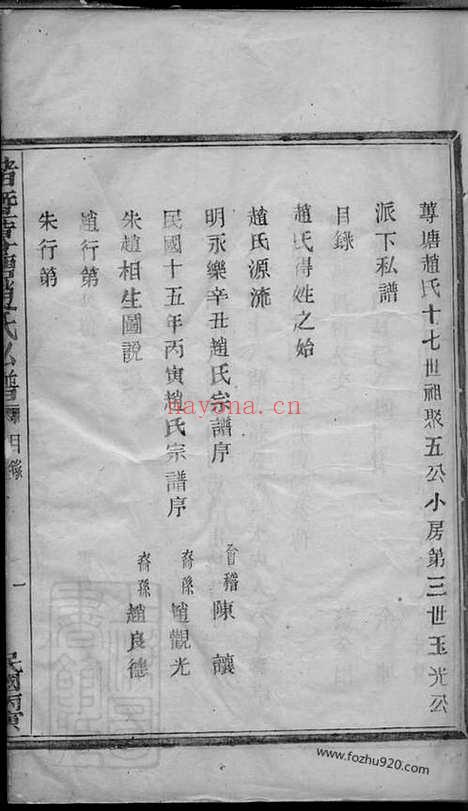 蓴塘趙氏十七世祖聚五公小房第三世玉光公
派下私譜
目錄
趙氏得姓之始
趙氏源流
明永樂辛丑趙氏宗譜序 會稽 陳讓
民國十五年丙寅趙氏宗譜序 裔孫 趙觀光
朱趙相生圖說 裔孫 趙良德
趙行第
朱行第
趙氏私譜 目錄 一 民國丙寅
nayona.cn
www.fozhu920.com